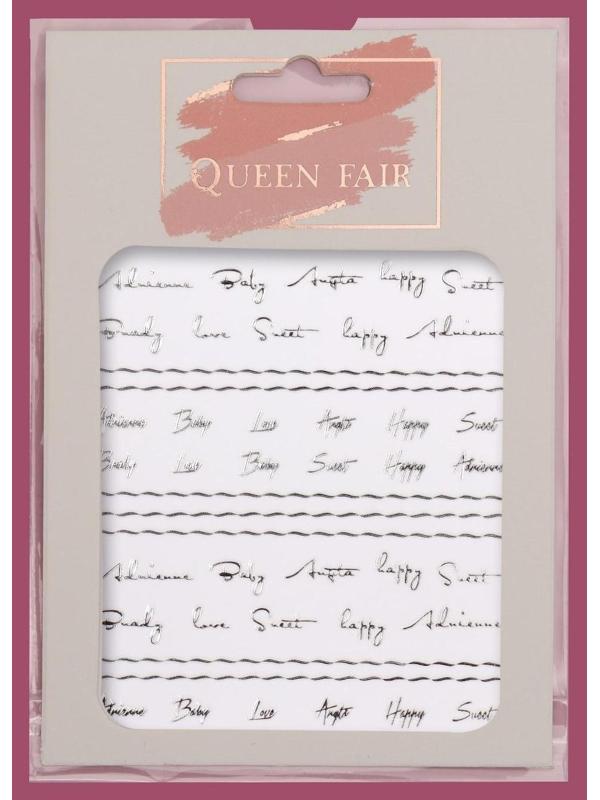 QUEEN FAIR
Adrienne Baby Angta happy Sweet
Bundy love Sweet happy Adrienne
Adrienne Baby Love Angts Happy Sweet
Love Baby Sweet Happy Adrienne
Adrienne Baby Angta happy Sweet
love Sweet happy Adrienne
Adrienne Baby Love Happy Sweet